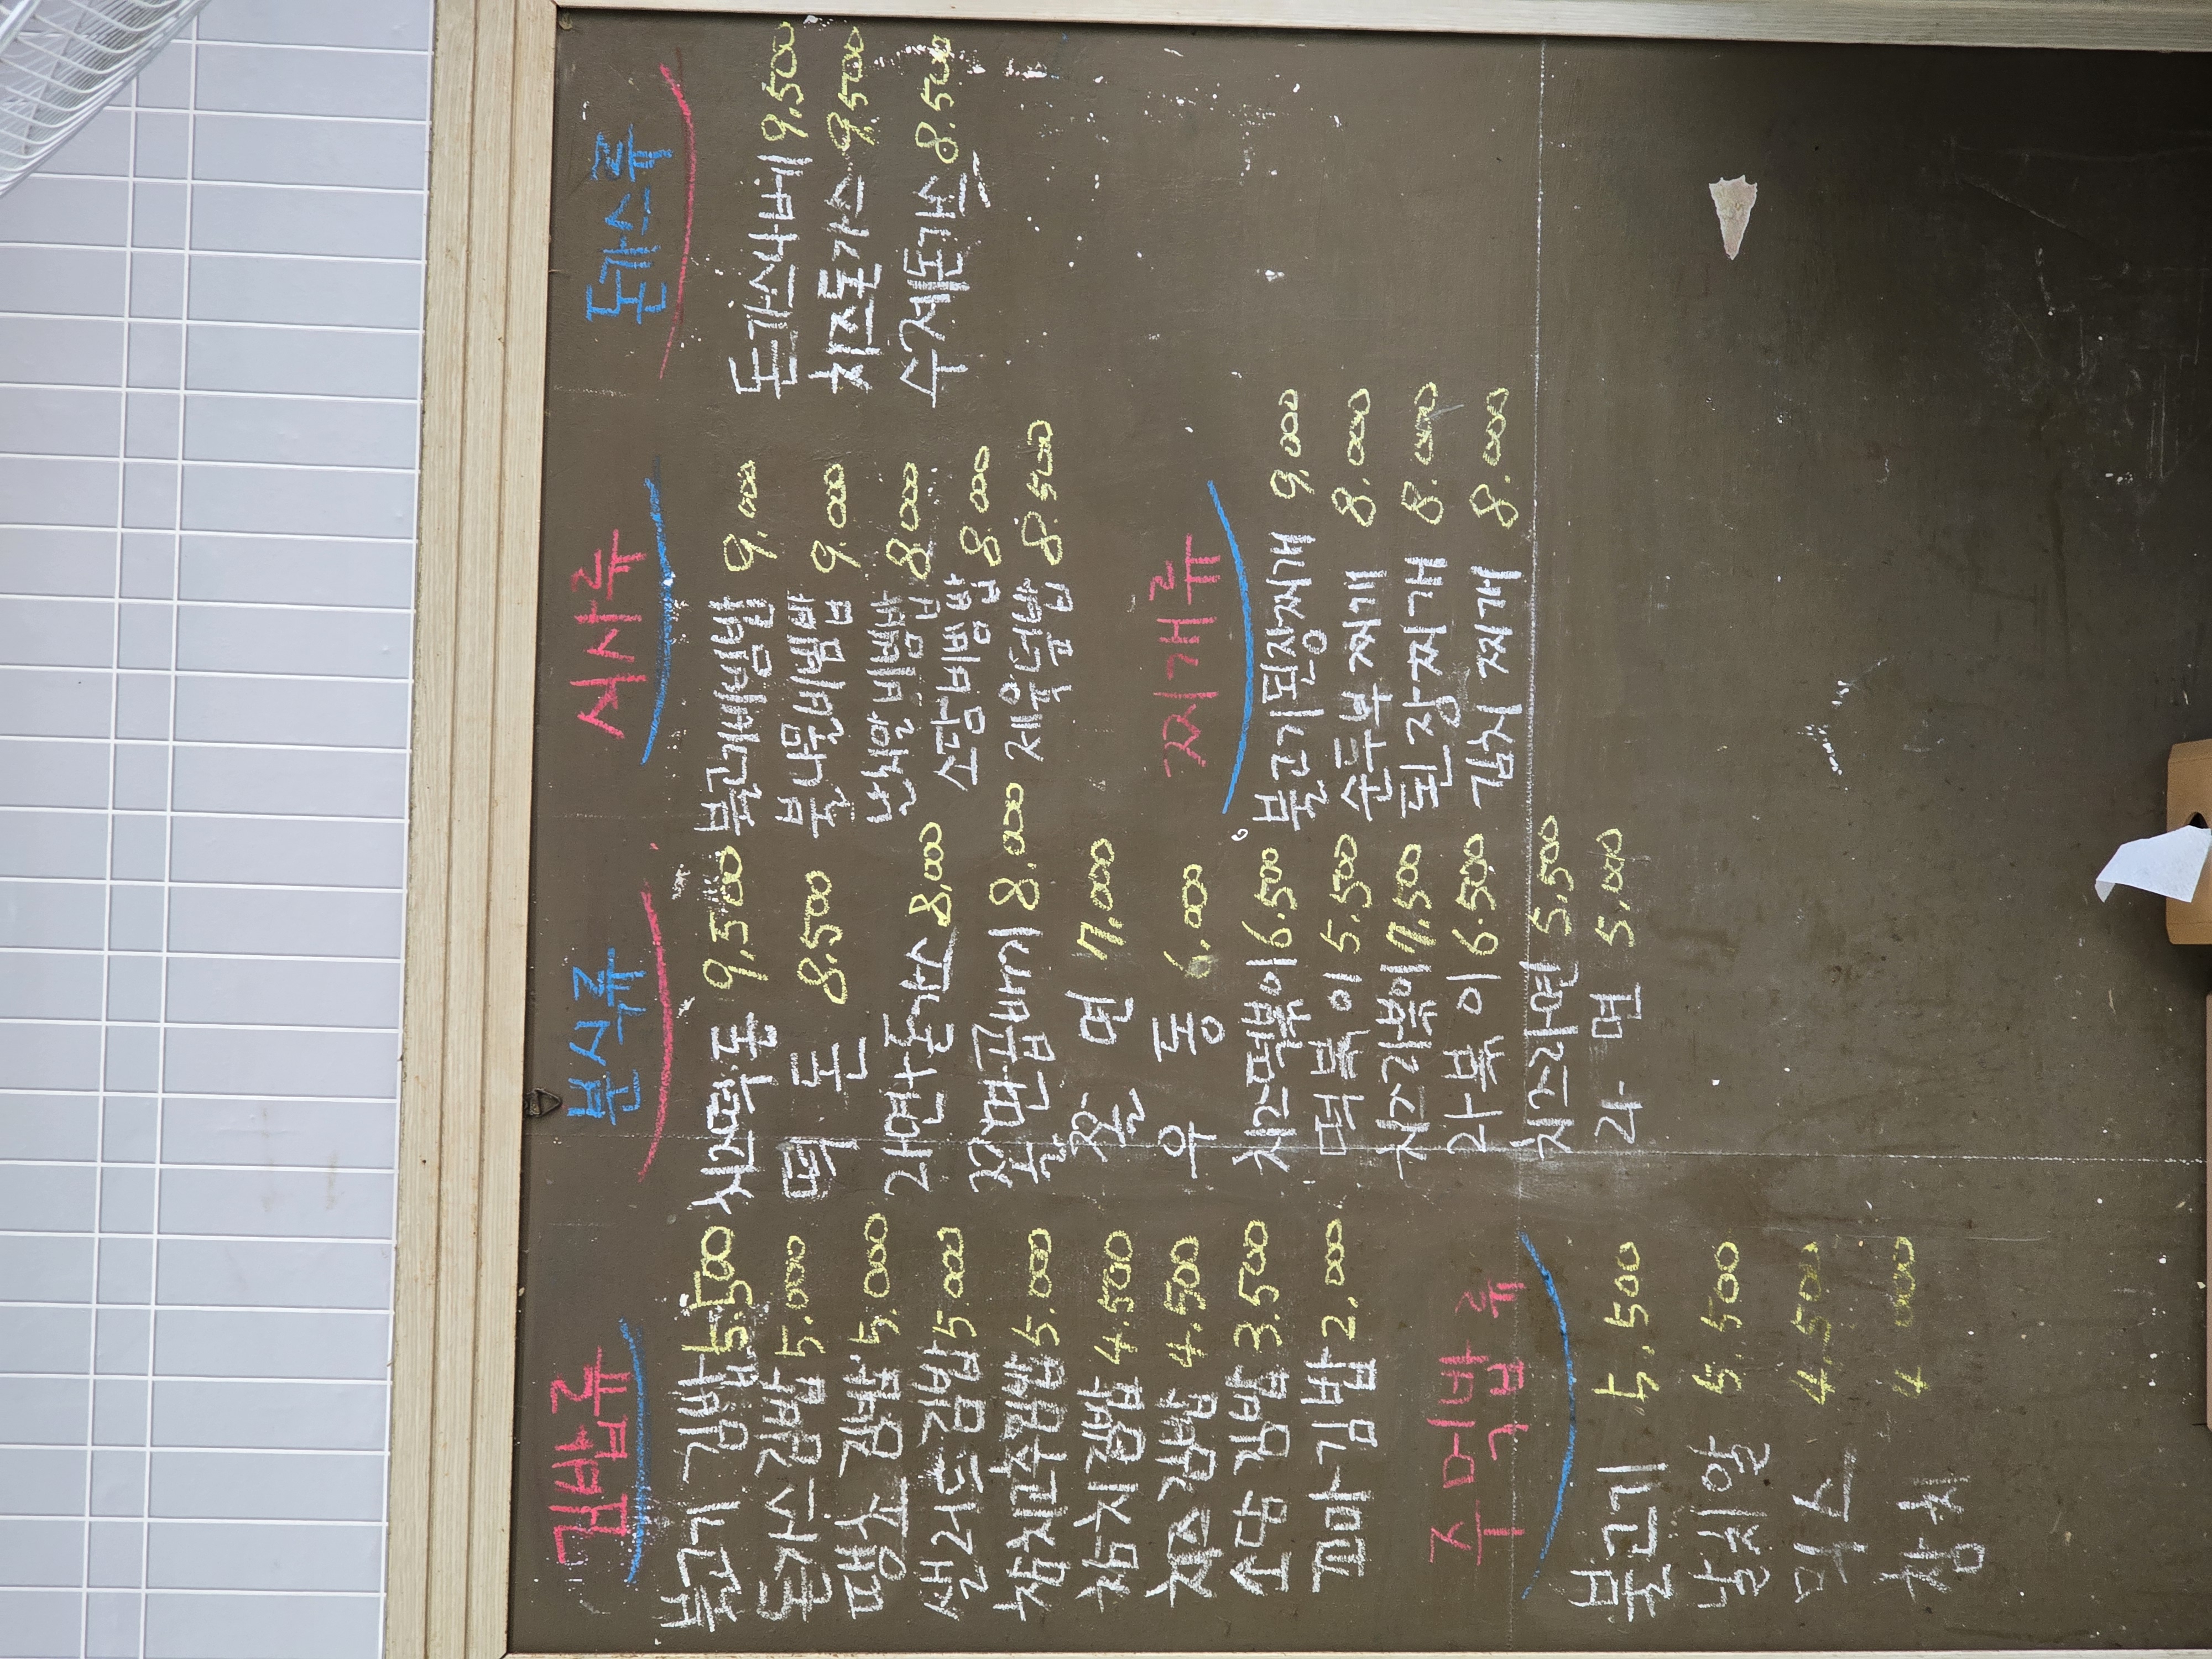 김밥류
불고기 김밥 5.500
돈가스김밥 5.000
땡초 김밥 5.000
샐러드김밥 5.000
참치고추김밥 5.000
참치김밥 4.500
치즈김밥 4.500
소담 김밥 3.500
꼬마김밥 2.000
주먹밥류
불고기 5.500
날치알 5.500
믹스 4.500
참치 4.000
분식류
9.500
떡 8.500
8.000
8.000
쫄 면 7.000
우 동 6.000
치즈떡볶이 6.500
떡볶이 5.500
치즈라볶이 7.500
라볶이 6.500
치즈라면 5.500
라 면 5.000
식사류
불고기비빔밥 9.000
비빔밥 9.000
날치알비빔밥 8.000
소담비빔밥 8.000
제육덮밥 8.500
찌개류
불고기된장찌개 9.000
순두부찌개 8.000
된장찌개 8.000
김치찌개 8.000
돈가스류
9.500
치즈돈가스 9.500
수제돈가스 8.500